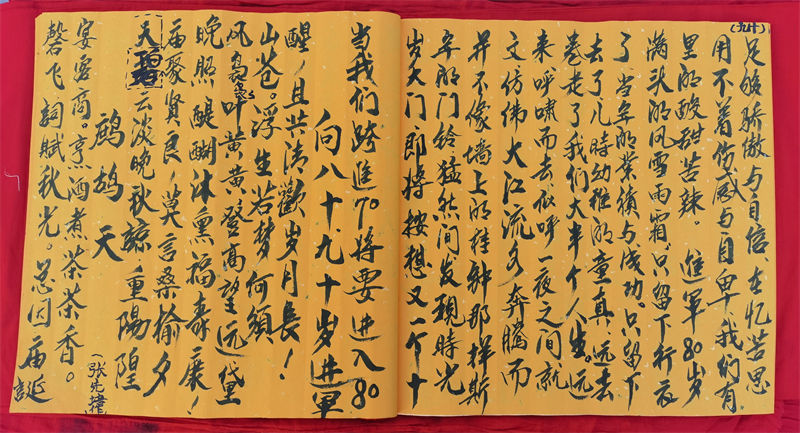 磬飞詞賦秋光。总因庙誕
宴宾商。烹酒煮茶茶香。
(张先撑)
鹧鸪天
天碧云淡晚秋諒重陽隍
庙聚賢良,莫言桑榆夕
晚照醍醐沐熏福寿康!
风高叶黄黄登高望远黛
山苍。浮生若梦何須
醒,且共清歡岁月長!
向八十九十岁進軍
当我们跨進70将要进入80
岁大门即将按想又一个十
年的门铃猛然间发現時光
并不像墙上的挂钟那样斯
文仿佛大江流水奔騰而
来呼啸而去似呼一夜之间就
卷走了我们大半个人生,远
去了儿時幼稚的童真,远去
了当年的業绩与成功。只留下
满头的风雪雨霜,只留下行衣
里的酸甜苦辣。進军80岁
用不着伤感与自卑,我们有
足够骄傲与自信,在忆苦思
(九十)